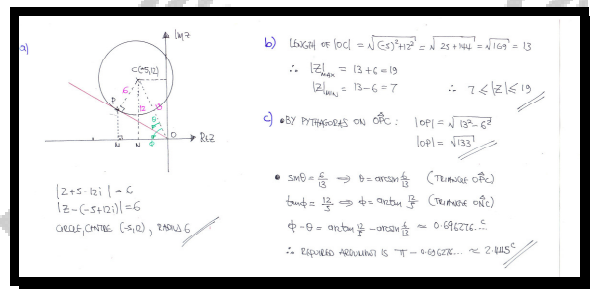 a)
Im Z
C(-5,12)
6
12
13
6
P
θ
φ
O
Re Z
M
N
|Z+5-12i| = 6
|Z-(-5+12i)| = 6
CIRCLE, CENTRE (-5,12), RADIUS 6
b) LENGTH OF |OC| = √(-5)²+12² = √25+144 = √169 = 13
∴ |Z|MAX = 13+6 = 19
|Z|MIN = 13-6 = 7 ∴ 7 ≤ |Z| ≤ 19
c) • BY PYTHAGORAS ON OP̂C : |OP| = √13²-6²
|OP| = √133
• sinθ = 6/13 ⇒ θ = arcsin 6/13 (TRIANGLE OP̂C)
tanφ = 12/5 ⇒ φ = arctan 12/5 (TRIANGLE ON̂C)
φ - θ = arctan 12/5 - arcsin 6/13 ≈ 0.696276...ᶜ
∴ REQUIRED ARGUMENT IS π - 0.696276... ≈ 2.445ᶜ